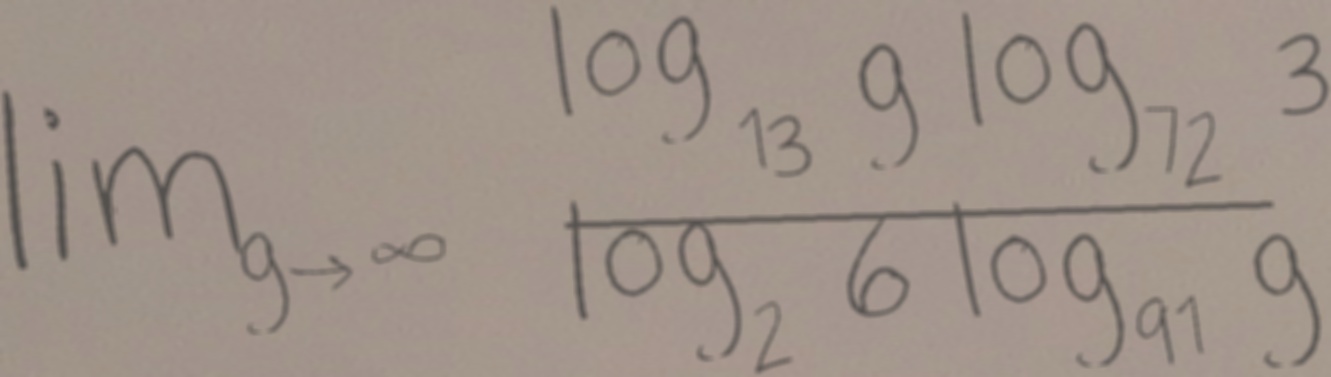 lim_{g→∞} \frac{log_{13} g log_{72} 3}{log_{2} 6 log_{91} g}